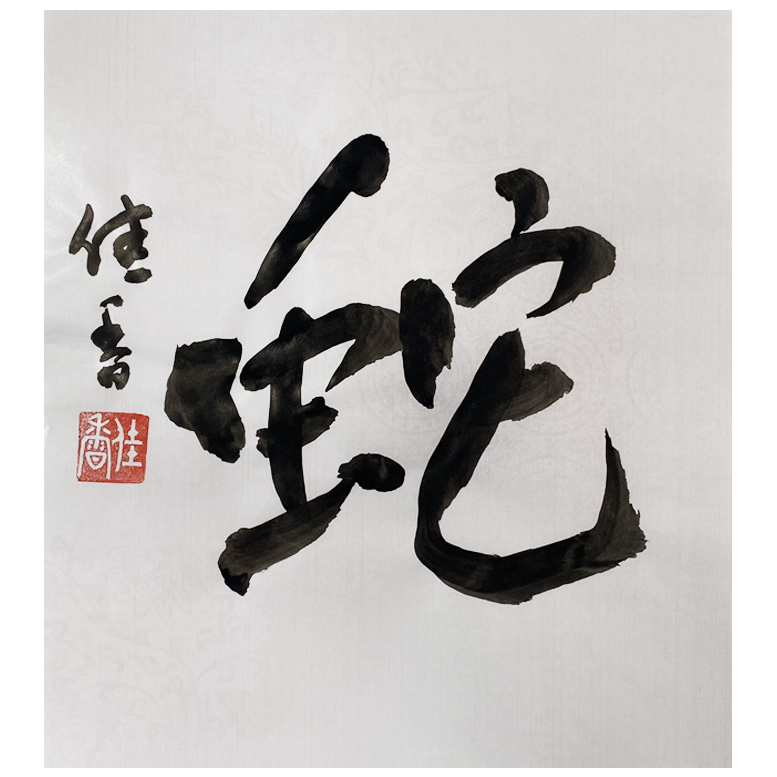 蛇
佳香
佳香